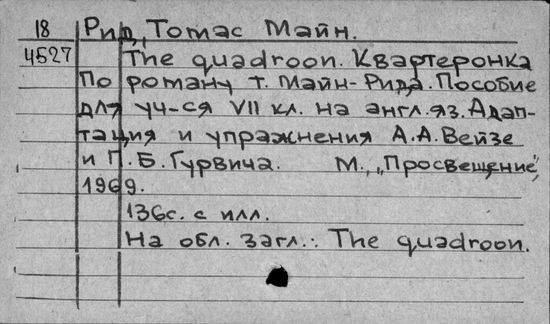 18 Рид, Томас Майн.
4527 The quadroon. Квартеронка
По роману Т. Майн-Рида. Пособие
для уч-ся VII кл. на англ. яз. Адап-
тация и упражнения А.А. Вейзе
и П.Б. Гурвича. М., „Просвещение",
1969.
136с. с илл.
На обл. загл.: The quadroon.